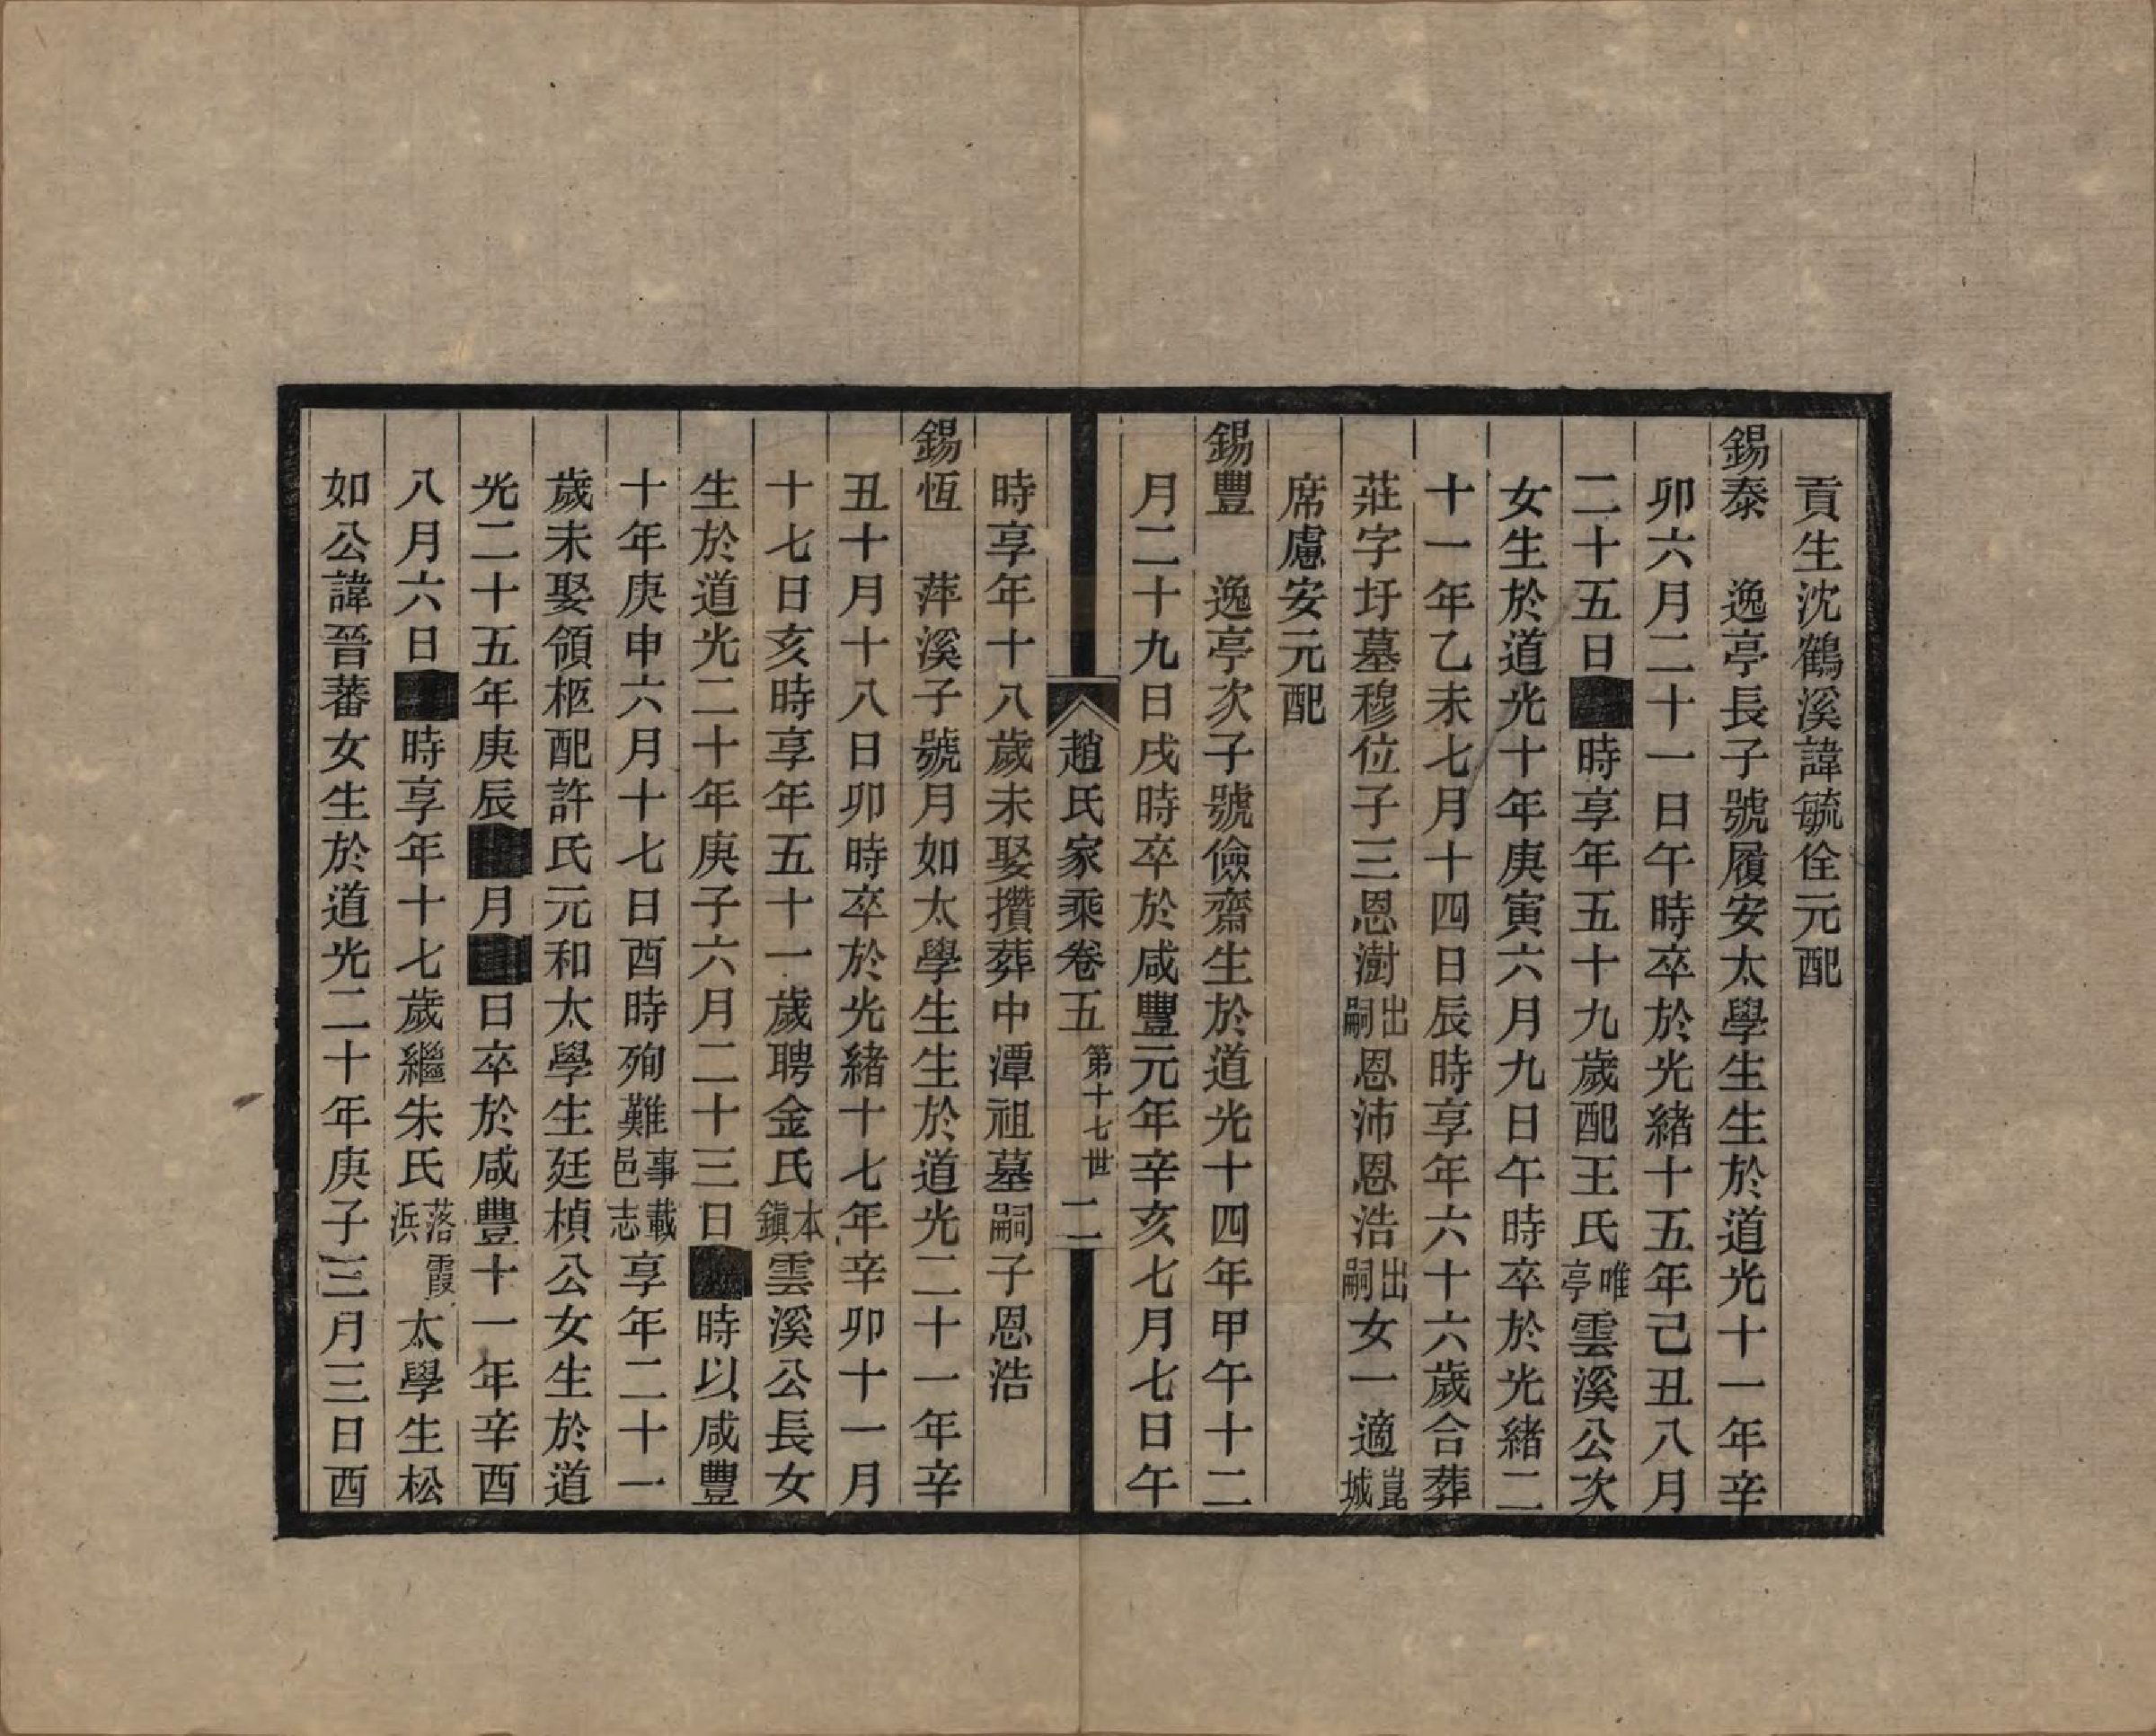 貢生沈鶴溪諱毓佺元配
錫泰　逸亭長子號履安太學生生於道光十一年辛
卯六月二十一日午時卒於光緒十五年己丑八月
二十五日■時享年五十九歲配王氏唯亭雲溪公次
女生於道光十年庚寅六月九日午時卒於光緒二
十一年乙未七月十四日辰時享年六十六歲合葬
莊字圩墓穆位子三恩澍出嗣恩沛恩浩出嗣女一適崑城
席慮安元配
錫豐　逸亭次子號儉齋生於道光十四年甲午十二
月二十九日戌時卒於咸豐元年辛亥七月七日午
趙氏家乘卷五　第十七世　二一
時享年十八歲未娶攢葬中潭祖墓嗣子恩浩
錫恆　萍溪子號月如太學生生於道光二十一年辛
丑十月十八日卯時卒於光緒十七年辛卯十一月
十七日亥時享年五十一歲聘金氏本鎮雲溪公長女
生於道光二十年庚子六月二十三日■時以咸豐
十年庚申六月十七日酉時殉難事載邑志享年二十一
歲未娶領柩配許氏元和太學生廷楨公女生於道
光二十五年庚辰■月■日卒於咸豐十一年辛酉
八月六日■時享年十七歲繼朱氏落霞浜太學生松
如公諱晉蕃女生於道光二十年庚子三月三日酉